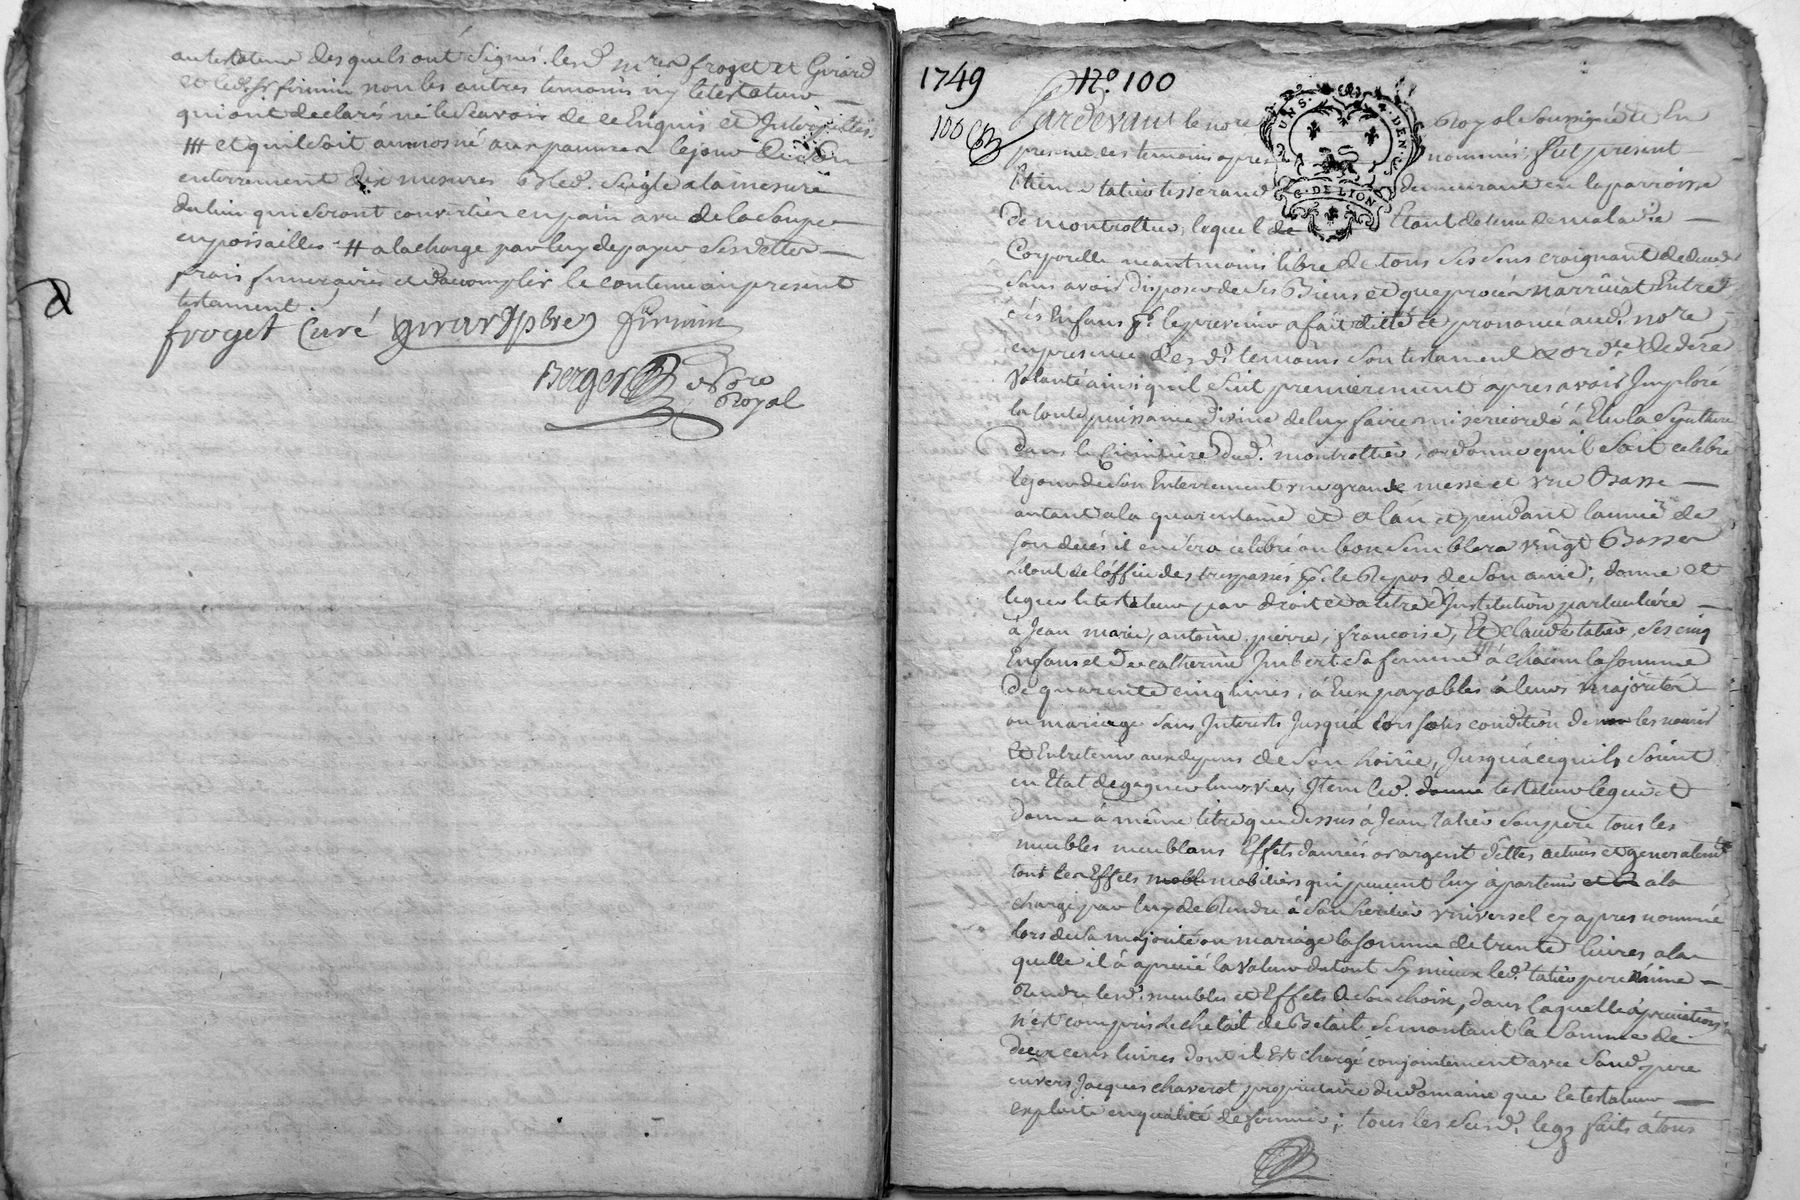 au testateur desquels ont signés lesd. mres froget et Girard
et led. Sr firmin non les autres temoins ny le testateur
qui ont declarés ne le scavoir de ce Enquis et Interpellés.
et quil soit aumosné aux pauvres le jour de son
enterrement dix mesures Bled. seigle a la mesure
du lieu qui seront converties en pain avec de la soupe
# a la charge par luy de payer ses dettes
frais funeraires et d'accomplir le contenu au present
testament.
froget Curé girard pbre firmin
Berger Nore
Royal
1749 No. 100
100
Pardevant le nore Royal soussigné et En
presence des temoins apres nommés: fut present
Etienne tatier tisserand demeurant en la parroisse
UNS. DEN.
G. DE LION
de montrottier, lequel de Etant detenu de maladie
Corporelle neantmoins libre de tous ses sens craignant de deceder
sans avoir disposer de ses Biens et que procés n'arrivat Entre
ces Enfans pr. le prevenir a fait ditté et prononcé aud. nore
en presence desd. temoins son testament et ordce. de derre
volonté ainsi quil suit premierement apres avoir Imploré
la toute puissance divine de luy faire misericorde à Elu la sepulture
dans le Cimitière dud. montrottier, ordonne quil soit celebré
le jour de son Enterrement une grande messe et une Basse
autant a la quarentaine et a l'an et pendant l'année de
son decés il en sera celebré ou bon semblera vingt Basses
a dont de l'office des trespassés pr. le Repos de son ame; donne et
legue le testateur par droit et a titre d'Institution particuliére
à Jean marie, antoine, pierre, francoise, Et claude tatier, ses cinq
Enfans et de catherine Imbert sa femme à chacun la somme
de quarente cinq livres, à Eux payables à leurs majorités
ou mariage sans Interests Jusqu'a lors sous condition de les nourir
et Entretenir aux depens de son hoirie, Jusqu'a ce quils soient
en Etat de gagner leurs vies Item led. donne testateur legue et
donne à même titre que dessus à Jean tatier son pere tous les
meubles meublans Effets danrées or argent dettes actives et generalemt
tous les Effets mobl mobiliers qui peuvent luy apartenir et a la
charge par luy de Rendre à son heritier universel cy apres nommé
lors de sa majorité ou mariage la somme de trente livres a la
quelle il à aprecié la valeur du tout sy mieux led. tatier pere n'aime
Rendre lesd. meubles et Effets a son choix, dans laquelle apreciation
n'est compris le chetail de Betail se montant la somme de
deux cens livres dont il Est chargé conjointement avec sond. pere
envers Jacques chaverot proprietaire du domaine que le testateur
exploite en qualité de fermier; tous les susd. legs faits a tous